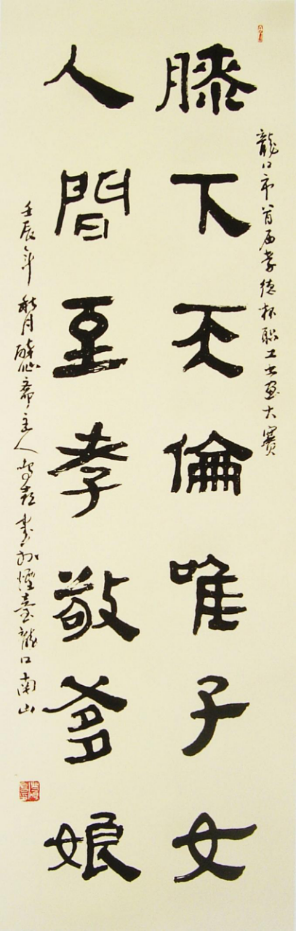 龍口市首届孝德杯职工书画大赛
膝下天倫唯子女
人間至孝敬爹娘
壬辰年秋月主人書於煙臺龍口南山